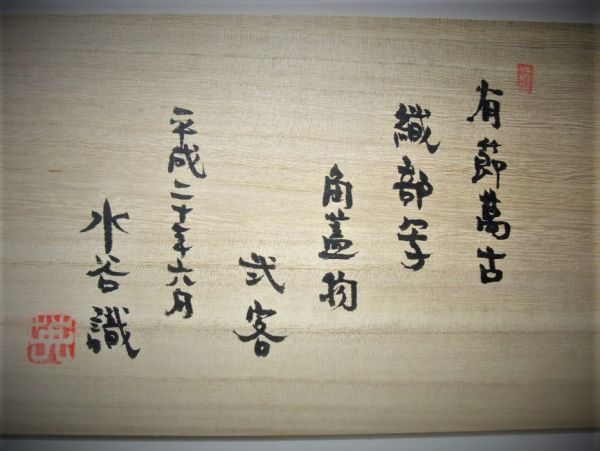 有節萬古
織部写
角蓋物
弐客
平成二十年六月
水谷識